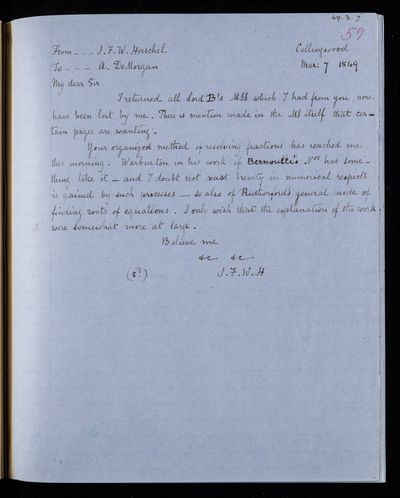 49.3.7
59
From --- J.F.W. Herschel
Collingwood
To --- A. DeMorgan
Mar: 7 1849
My dear Sir
I returned all Lord B's MSS which I had from you none
have been lost by me. There is mention made in the MS itself that cer-
tain pages are wanting.
Your organized method of resolving fractions has reached me
this morning. Warburton in his work of Bernoulli's Nos has some-
thing like it — and I doubt not brevity in numerical respects
is gained by such processes — so also of Rutherford's general mode of
finding roots of equations. I only wish that the explanation of the work
were somewhat more at large.
Believe me
&c &c
J.F.W.H